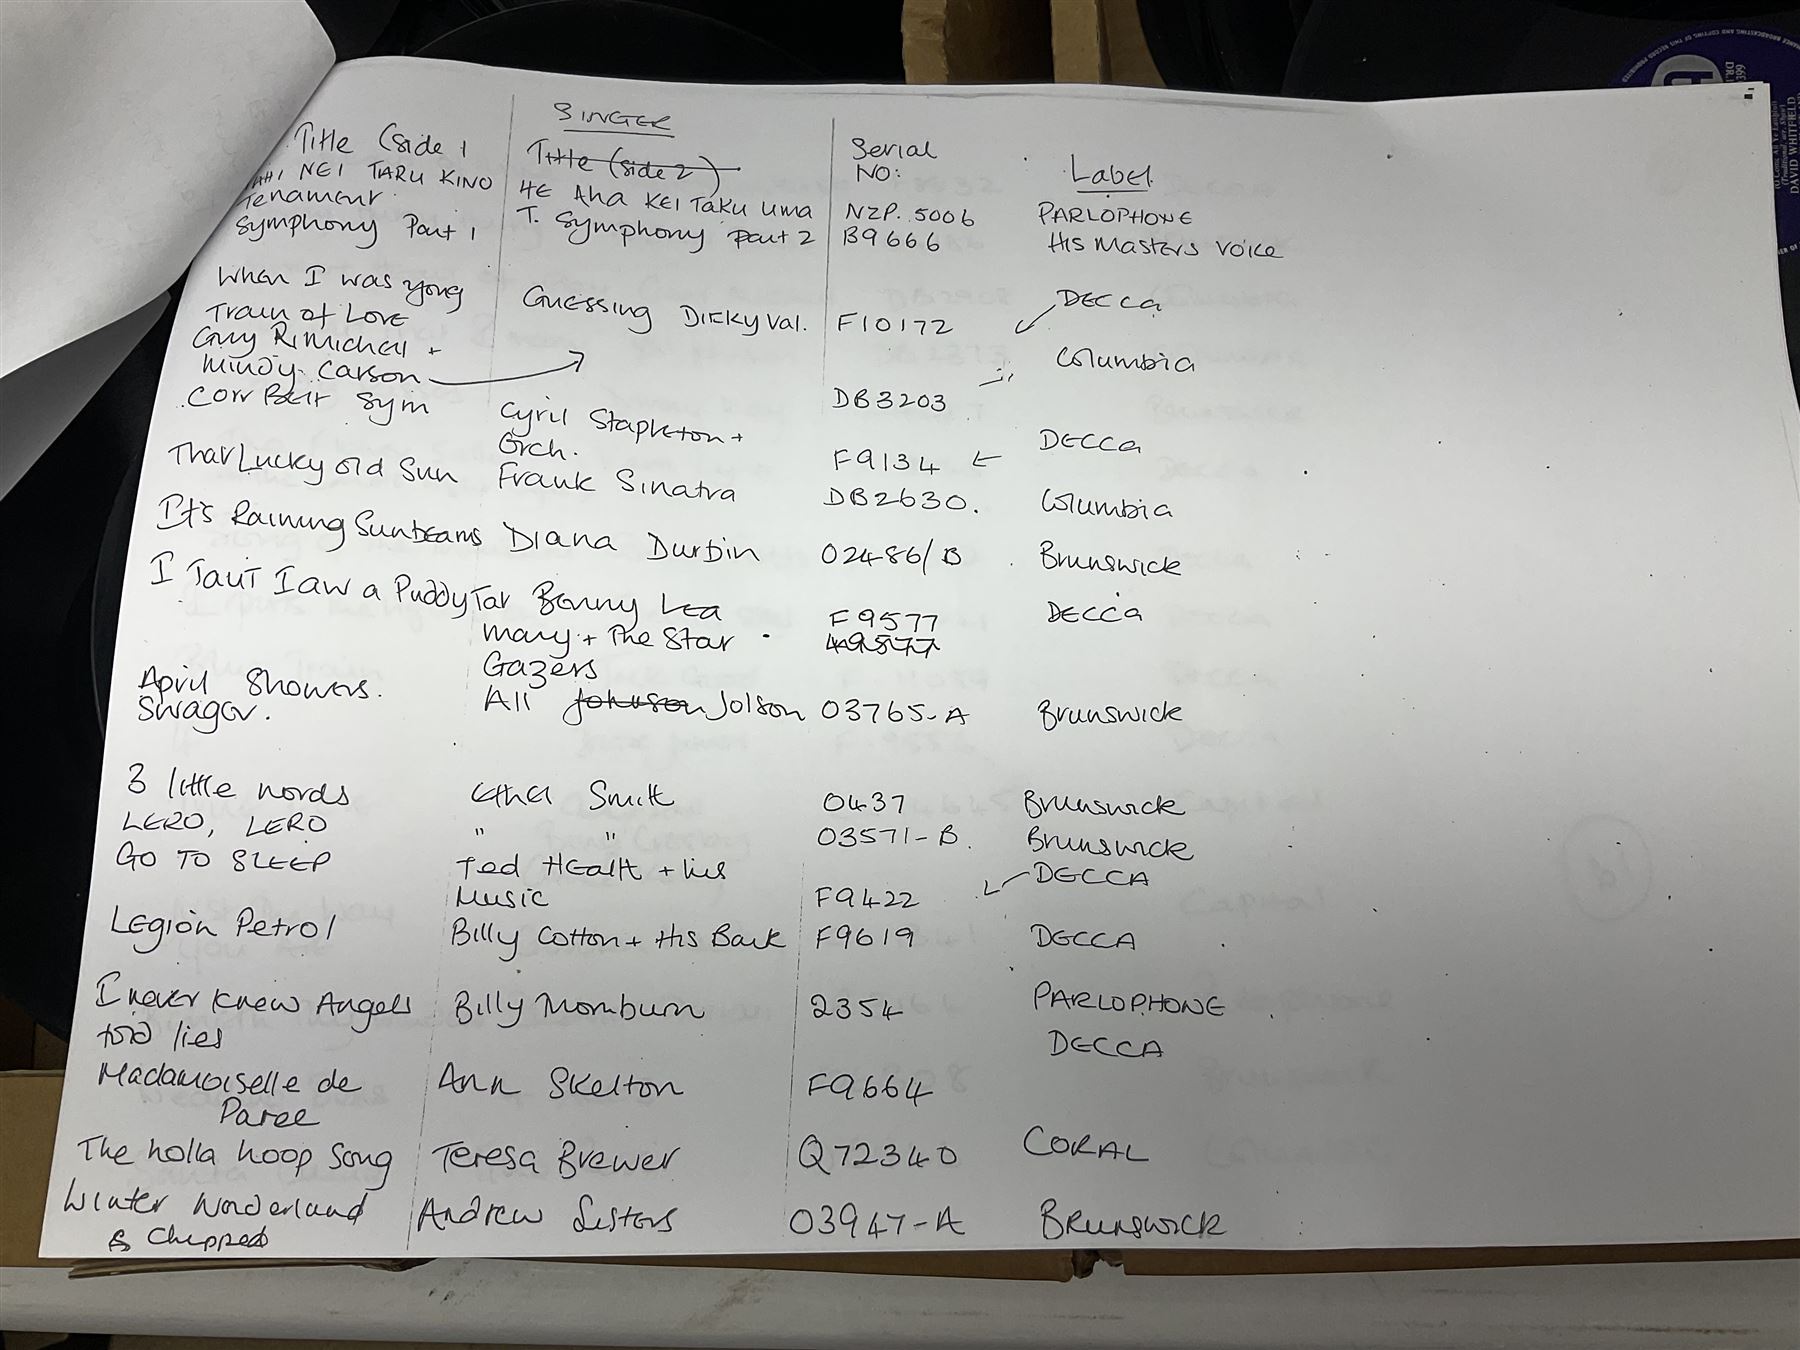 SINGER
Title (side 1 Title (side 2) Serial No: Label
NEI TARU KINO HE AHA KEI TAKU UMA NZP. 5006 PARLOPHONE
Tenament
Symphony Part 1 T. Symphony part 2 B9666 His Masters Voice
When I was yong Guessing Dicky Val. F10172 DECCA
Train of Love
Guy R. Michell +
Mindy Carson DB3203 Columbia
Corr Belt Sym Cyril Stapleton +
Orch. F9134 DECCA
That Lucky old Sun Frank Sinatra DB2630. Columbia
It's Raining Sunbeams Diana Durbin 02486/B Brunswick
I Taut I aw a Puddy Tat Benny Lea F9577 DECCA
Mary + The Star 49577
Gazers
April Showers. All Johnson Jolson 03765-A Brunswick
Swagar.
3 little words Ethel Smith 0437 Brunswick
LERO, LERO " " 03571-B. Brunswick
GO TO SLEEP Ted Heath + his
Music F9422 DECCA
Legion Petrol Billy Cotton + His Back F9619 DECCA
I never knew Angels Billy Momburn 2354 PARLOPHONE
told lies DECCA
Madamoiselle de Ann Skelton F9664
Paree
The holla hoop Song Teresa Brewer Q72340 CORAL
Winter Wonderland Andrew Sisters 03947-A Brunswick
& Chipped
DAVID WHITFIELD